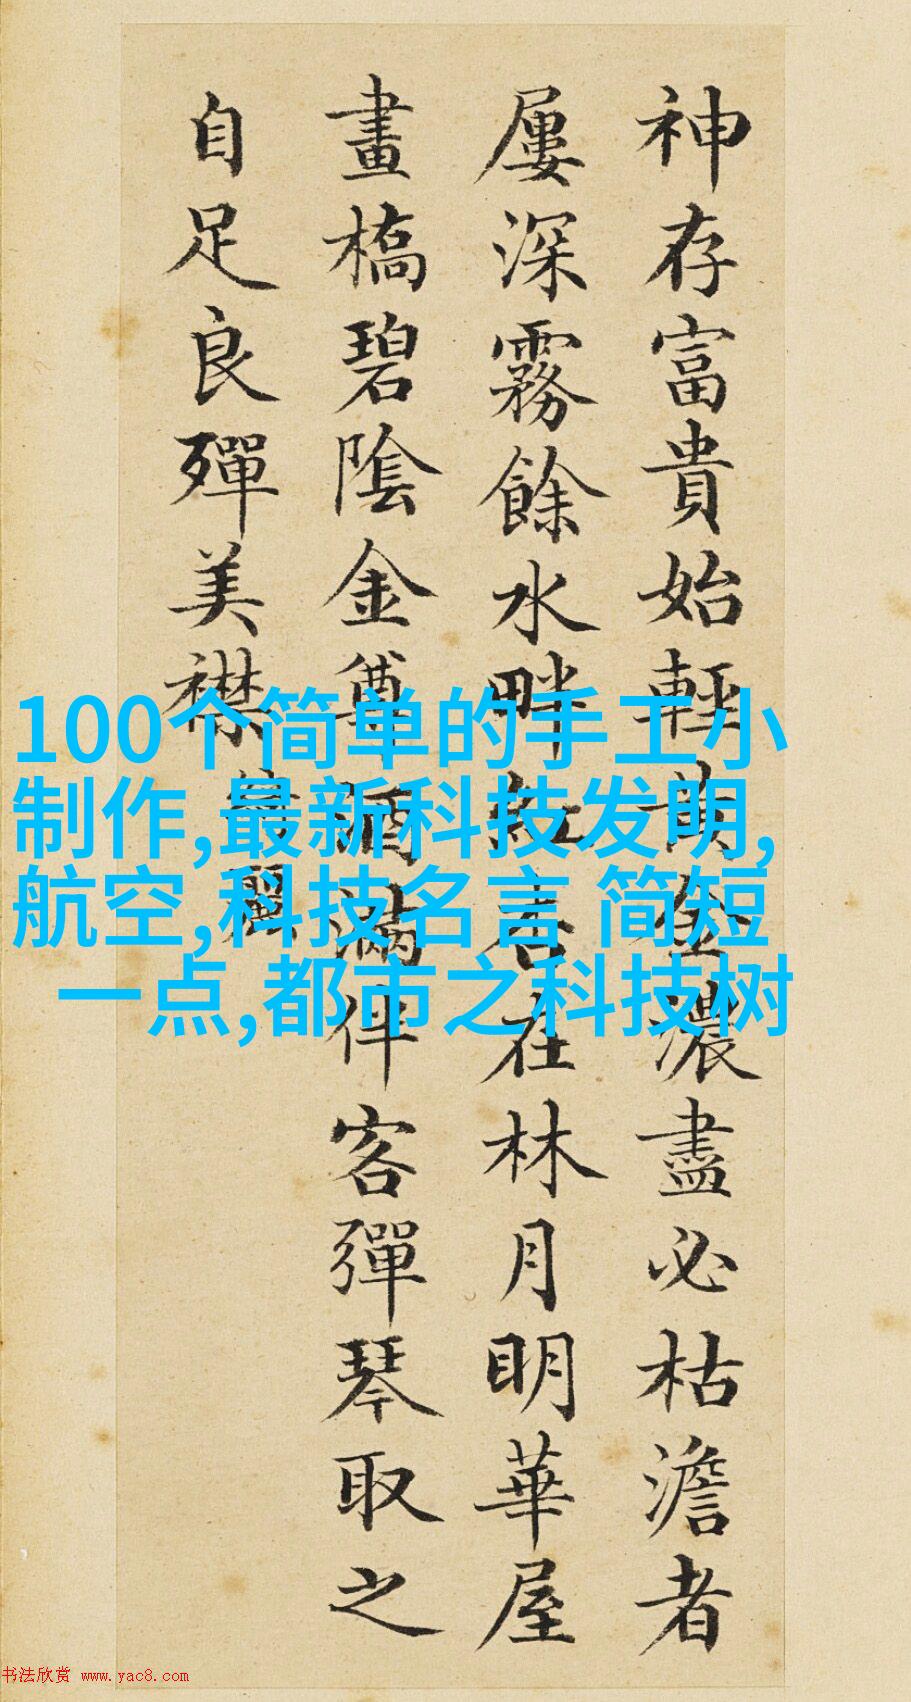 神存富貴始輕黄金濃盡必枯澹者
屢深霧餘水畔紅杏在林月明華屋
畫橋碧陰金尊酒滿伴客彈琴取之
自足良殫美襟
書翼
100个简单的手工小
制作,最新科技发明,
航空,科技名言 简短
一点,都市之科技树
书法欣赏 www.yac8.com